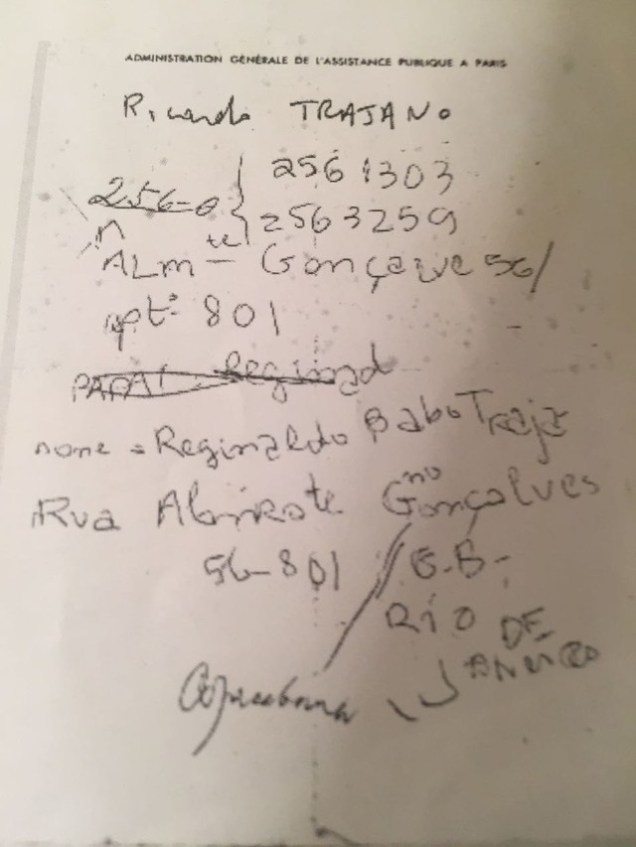 ADMINISTRATION GÉNÉRALE DE L'ASSISTANCE PUBLIQUE A PARIS
Ricardo TRAJANO
256-0 { 2561303
2563259
ALm te Gonçalve 56/
apt: 801
PAPAI Reginad
nome = Reginaldo Babo Traja
no
Rua Almirate Gonçalves
56-801 / G.B-
RIO DE
JANEIRO
Copacabana